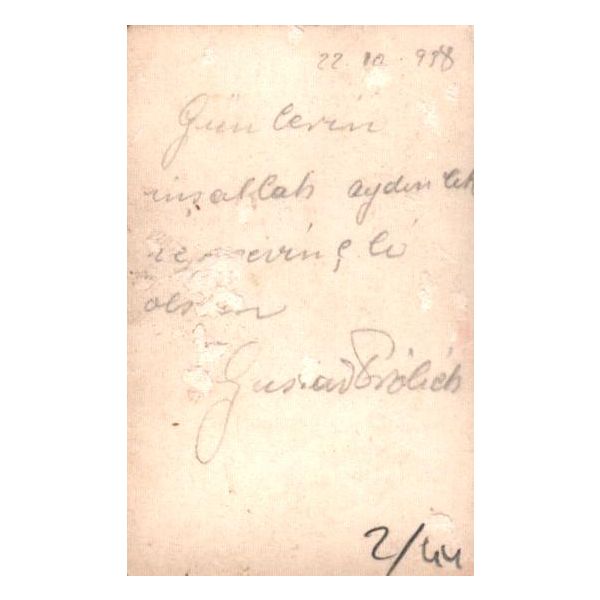 22.10.938
Günlerin
inşallah aydınlık
ve sevinçli
olsun
Gustav Frölich
2/44